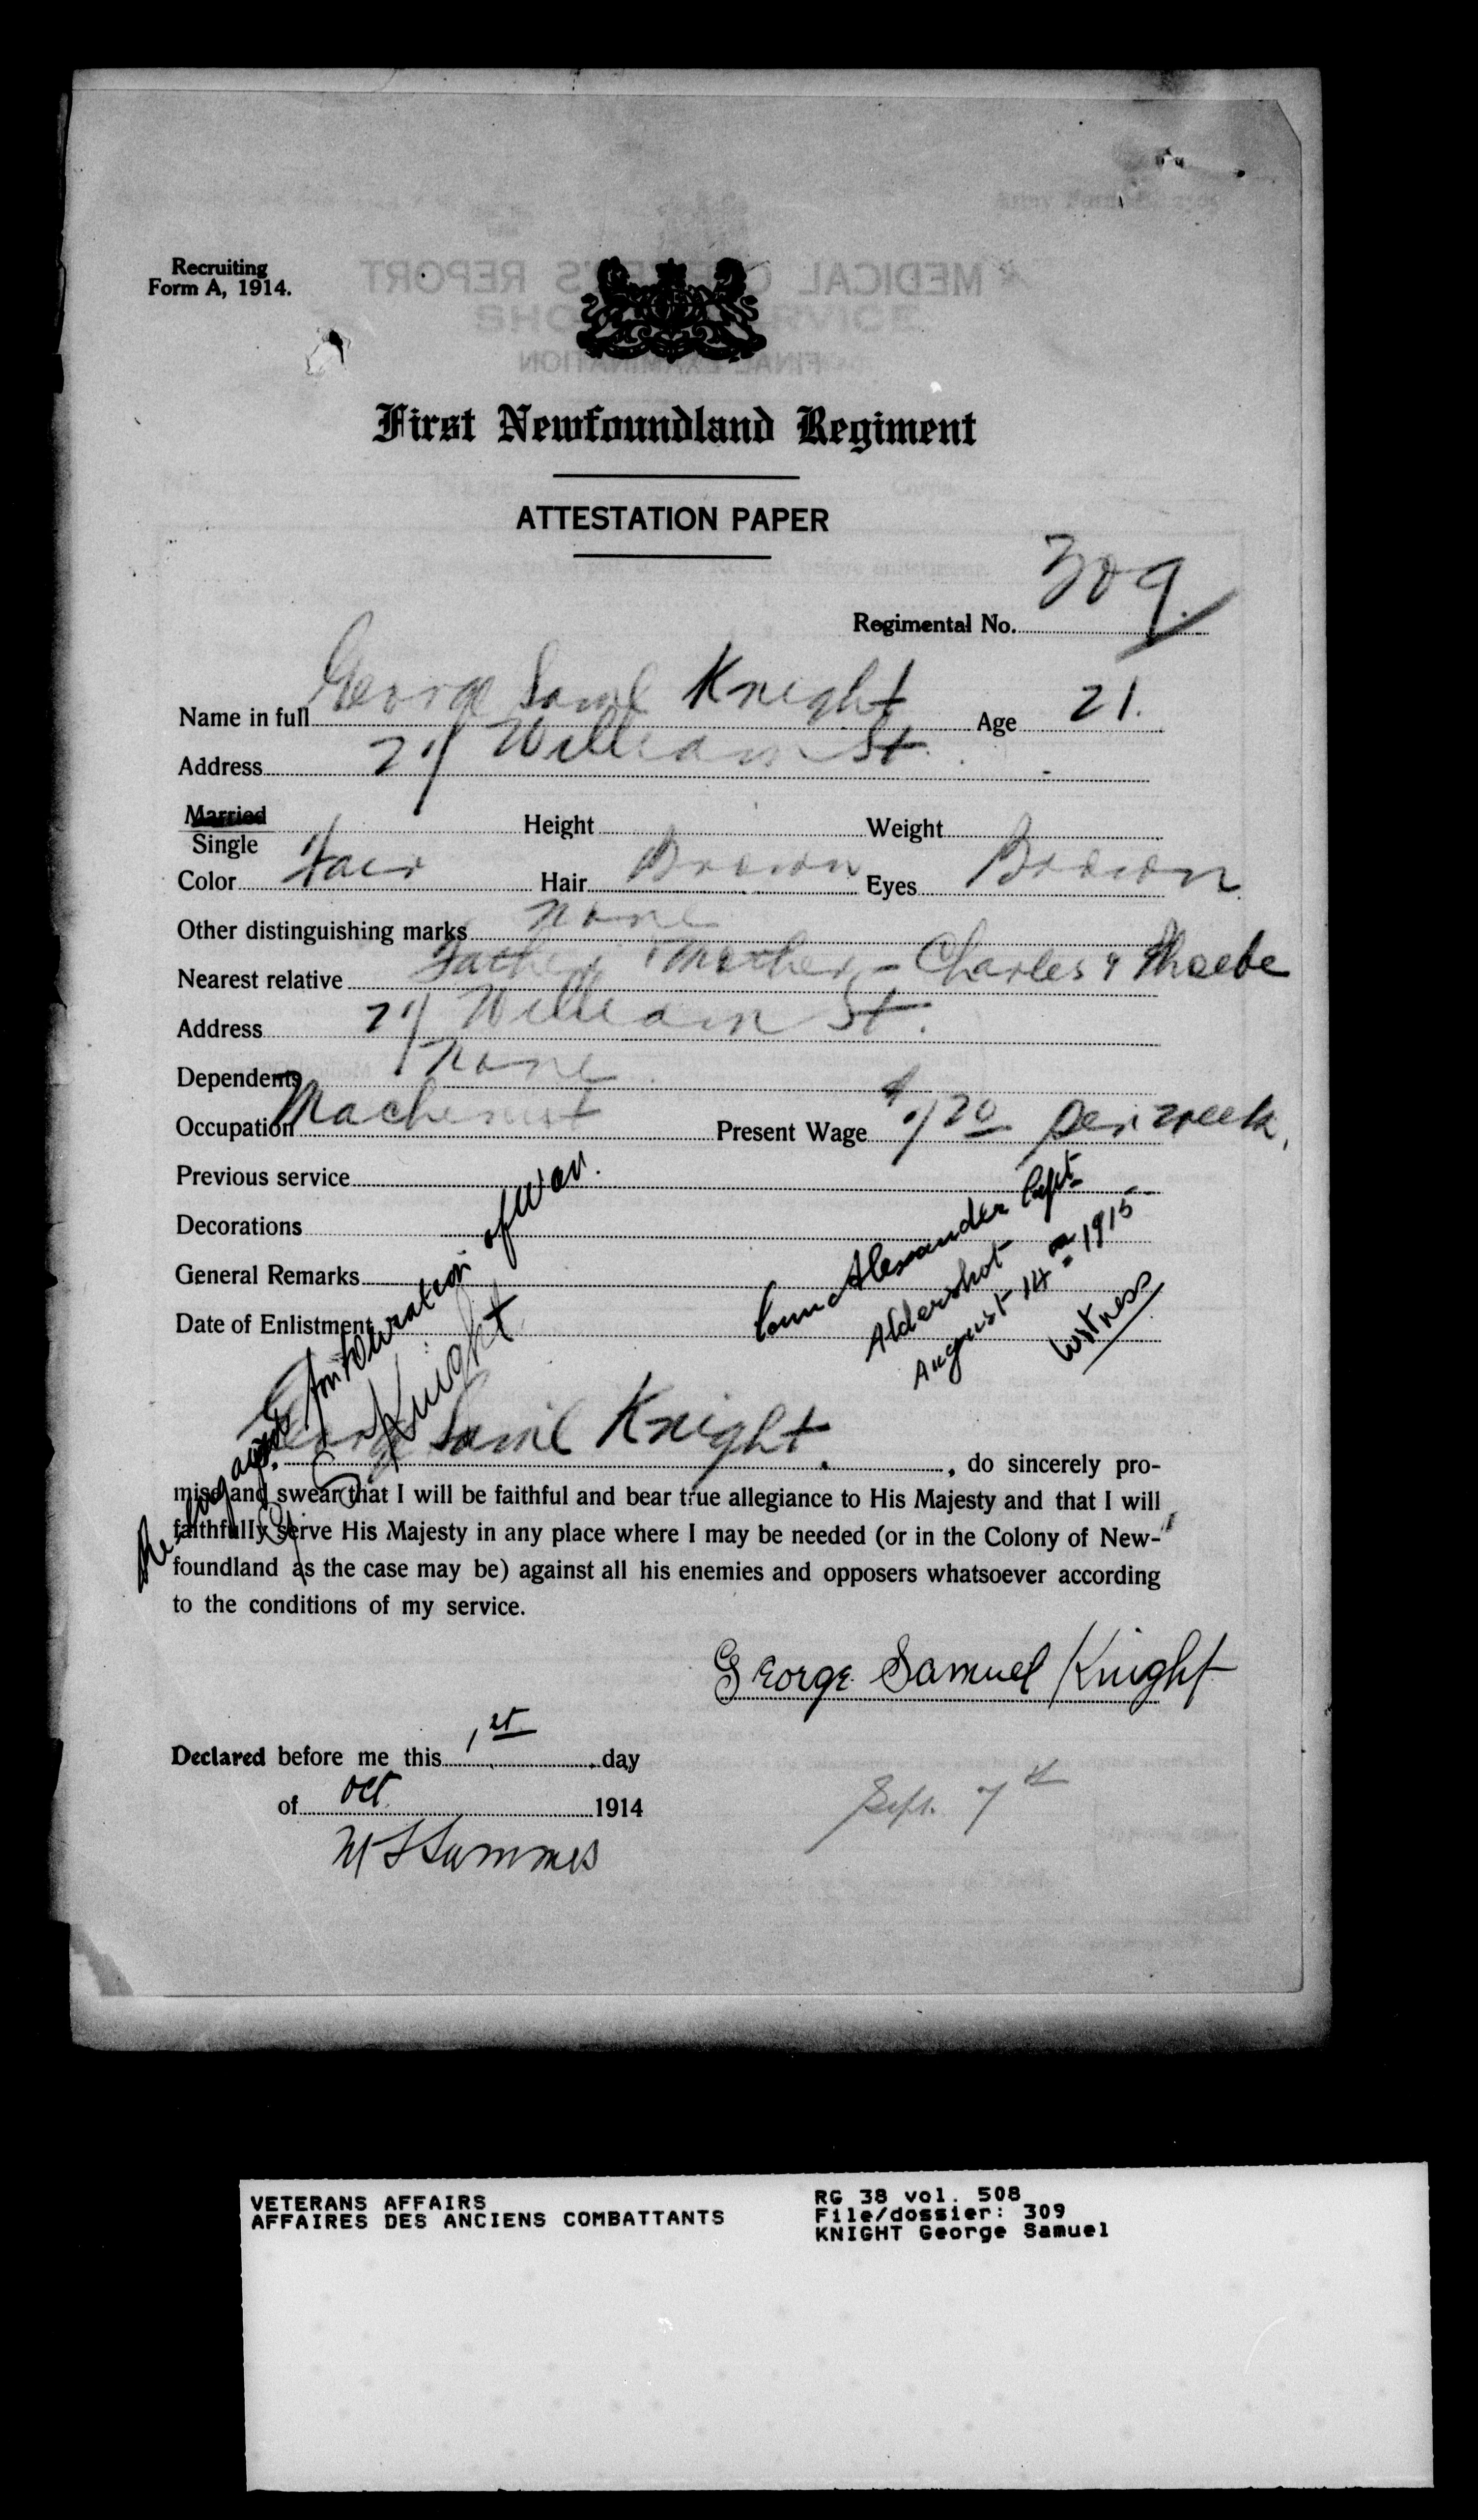 Recruiting
Form A, 1914.
First Newfoundland Regiment
ATTESTATION PAPER
Regimental No. 309
Name in full George Saml Knight Age 21.
Address 27 William St.
Married
Single Height Weight
Color Fair Hair Brown Eyes Brown
Other distinguishing marks None
Nearest relative Father & Mother - Charles & Phoebe
Address 27 William St.
Dependents None
Occupation Machinist Present Wage per week,
Previous service
Decorations
General Remarks
Date of Enlistment
for Duration of War.
G S Knight
Alexander Capt.
Aldershot
August 14 1915
Witness
George Saml Knight. , do sincerely pro-
mise and swear that I will be faithful and bear true allegiance to His Majesty and that I will
faithfully serve His Majesty in any place where I may be needed (or in the Colony of New-
foundland as the case may be) against all his enemies and opposers whatsoever according
to the conditions of my service.
George Samuel Knight
Declared before me this 1st day
of Oct. 1914
Sept. 7th
VETERANS AFFAIRS
AFFAIRES DES ANCIENS COMBATTANTS
RG 38 vol. 508
File/dossier: 309
KNIGHT George Samuel